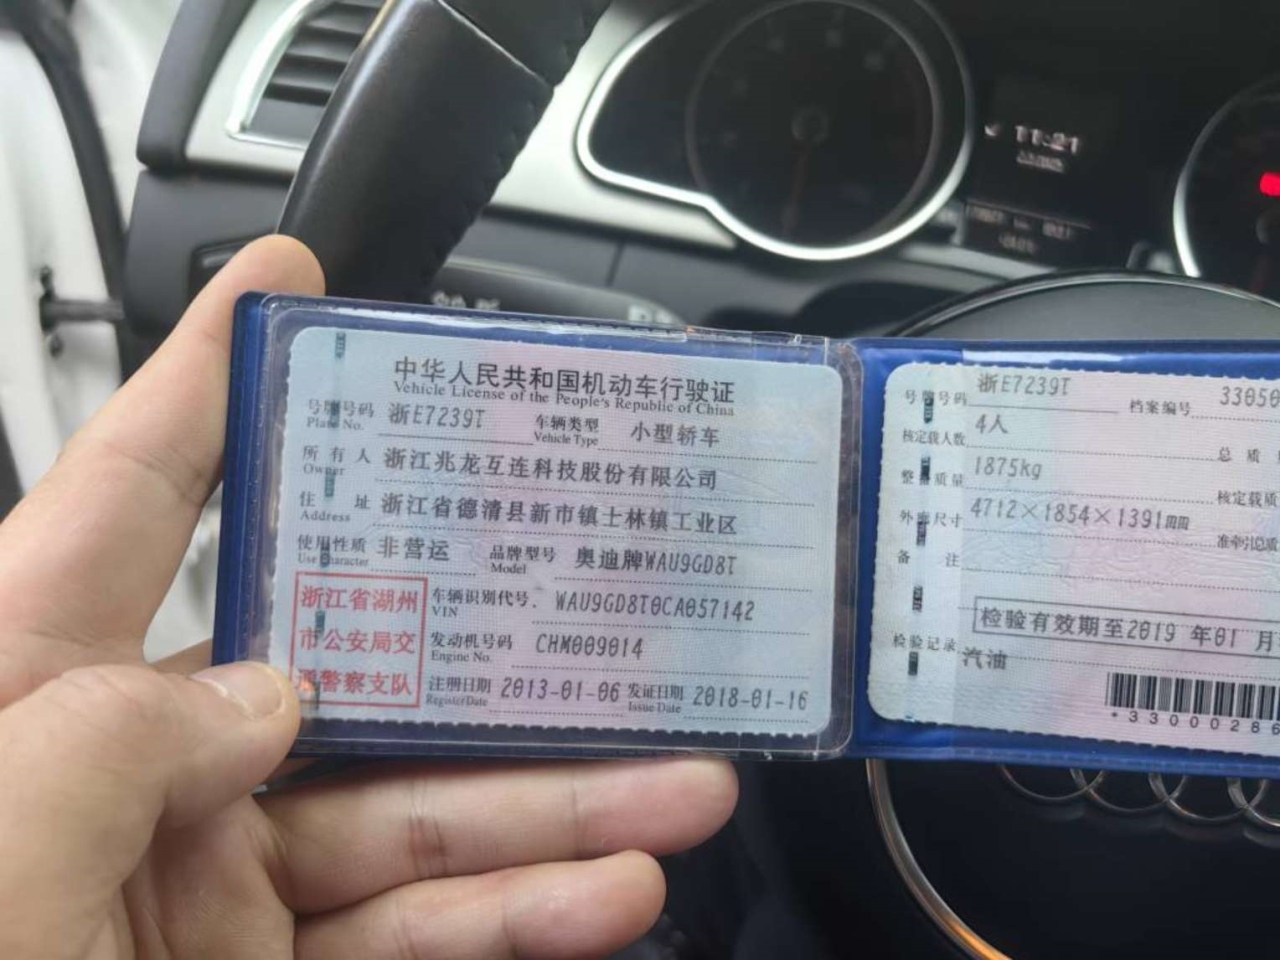 11:21
中华人民共和国机动车行驶证
Vehicle License of the People's Republic of China
号牌号码 浙E7239T 车辆类型 小型轿车
Plate No. Vehicle Type
所有人 浙江兆龙互连科技股份有限公司
Owner
住址 浙江省德清县新市镇士林镇工业区
Address
使用性质 非营运 品牌型号 奥迪牌WAU9GD8T
Use Character Model
浙江省湖州
市公安局交
通警察支队
车辆识别代号 WAU9GD8T0CA057142
VIN
发动机号码 CHM009014
Engine No.
注册日期 2013-01-06 发证日期 2018-01-16
Register Date Issue Date
号牌号码 浙E7239T 档案编号 33050
核定载人数 4人 总质
整备质量 1875kg 核定载质
外廓尺寸 4712×1854×1391 准牵引总质
备注
检验有效期至2019 年01 月
检验记录 汽油
*33000286